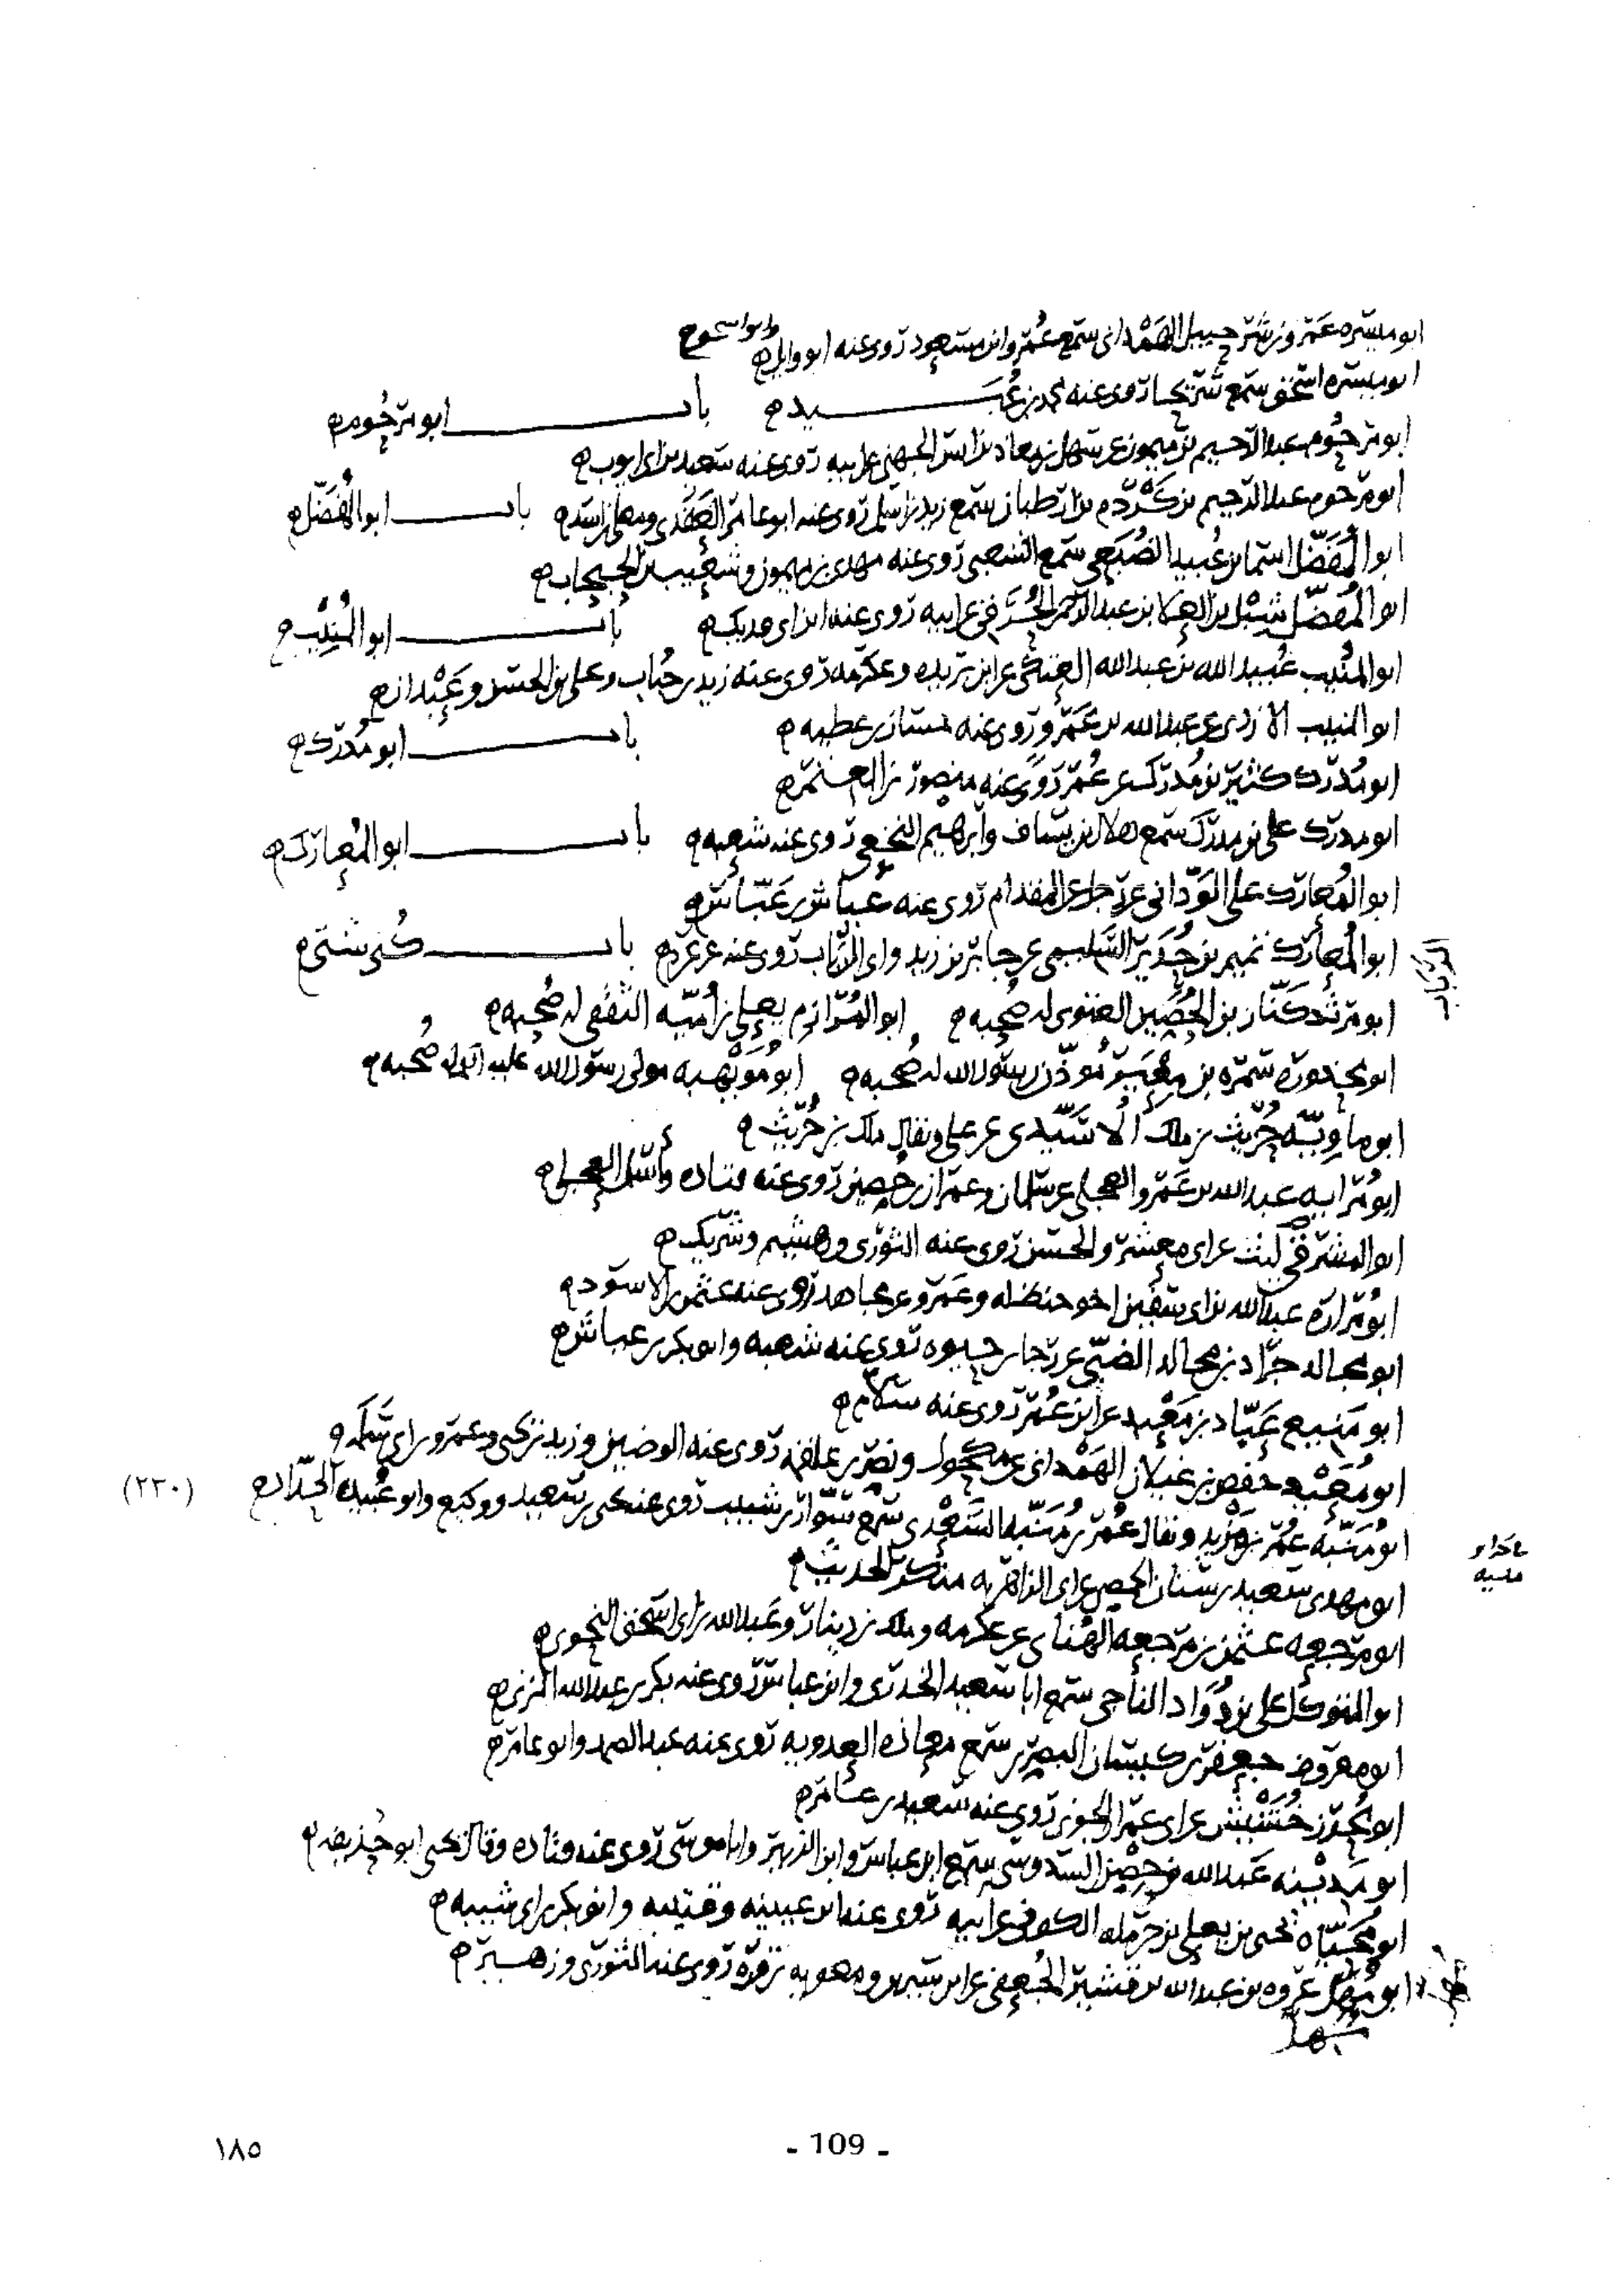 ابو ميسره عمرو بن شرحبيل الهمداني سمع عمر وابن مسعود روى عنه ابو وايل وابو اسحق
ابو ميسره اسحق سمع شريحا روى عنه محمد بن عبيد باب ابو مرحوم
ابو مرحوم عبد الرحيم بن ميمون عن سهل بن معاذ بن انس الجهني عن ابيه روى عنه سعيد بن ابي ايوب
ابو مرحوم عبد الرحيم بن كردم بن ارطبان سمع زيد بن اسلم روى عنه ابو عامر العقدي ومعلى بن اسد باب ابو المفضل
ابو المفضل اسما بن عبيد الضبعي سمع الشعبي روى عنه مهدي بن ميمون وشعيب بن الحبحاب
ابو المفضل شبل بن العلا بن عبد الرحمن الحرقي عن ابيه روى عنه ابن ابي فديك باب ابو المنيب
ابو المنيب عبيد الله بن عبد الله العتكي عن ابن بريده وعكرمه روى عنه زيد بن حباب وعلي بن الحسن وعبدان
ابو المنيب الازدي عن عبد الله بن عمرو روى عنه حسان بن عطيه باب ابو مدرك
ابو مدرك كثير بن مدرك عن عمر روى عنه منصور بن المعتمر
ابو مدرك علي بن مدرك سمع هلال بن يساف وابرهيم النخعي روى عنه شعبه باب ابو المعارك
ابو المعارك علي الوداني عن رجل عن المقدام روى عنه عياش بن عباس
ابو المعارك تميم بن حدير السليمي عن جابر بن زيد وابي الرباب روى عنه عرعره باب كنى شتى
ابو مرثد كناز بن الحصين الغنوي له صحبه ابو المرازم يعلى بن اميه الثقفي له صحبه
ابو محذوره سمره بن معير موذن رسول الله له صحبه ابو مويهبه مولى رسول الله عليه السلام له صحبه
ابو ماويه حريث بن ملك الاسيدي عن علي ويقال ملك بن حريث
ابو مرايه عبد الله بن عمرو العجلي عن سلمان وعمران بن حصين روى عنه قتاده واسلم العجلي
ابو المشرفي ليث عن ابي معشر والحسن روى عنه الثوري وهشيم وشريك
ابو مراره عبد الله بن ابي سفين اخو حنظله وعمرو عن مجاهد روى عنه عثمن بن الاسود
ابو مجالد جراد بن مجالد الضبي عن رجا بن حيوه روى عنه شعبه وابو بكر بن عياش
ابو منيع عباد بن معبد عن ابن عمر روى عنه سلام
ابو معيد حفص بن غيلان الهمداني عن مكحول ونصر بن علقمه روى عنه الوضين وزيد بن يحيى وعمرو بن ابي سلمه
ابو منبه عمر بن مزيد ويقال عمر بن منبه السعدي سمع سوار بن شبيب روى عنه يحيى بن سعيد ووكيع وابو عبيده الحداد
(٢٣٠)
ابو مهدي سعيد بن سنان الحمصي عن ابي الزاهريه منكر الحديث
ابو مرجعه عثمن بن مرجعه الهنائي عن عكرمه وملك بن دينار وعبد الله بن ابي اسحق النحوي
ابو المتوكل علي بن دواد الناجي سمع ابا سعيد الخدري وابن عباس روى عنه بكر بن عبد الله المزني
ابو معروف جعفر بن كيسان البصري سمع معاذه العدويه روى عنه عبد الصمد وابو عامر
ابو محرز خشيش عن ابي عمران الجوني روى عنه سعيد بن عامر
ابو مدينه عبد الله بن حصن السدوسي سمع ابن عباس وابن الزبير وابا موسى روى عنه قتاده وقال يحيى ابو حذيفه
ابو محياه يحيى بن يعلى بن حرمله الكوفي عن ابيه روى عنه ابن عيينه وقتيبه وابو بكر بن ابي شيبه
ابو مهل عروه بن عبد الله بن قشير الجعفي عن ابن سيرين ومعويه بن قره روى عنه الثوري وزهير
مهل
- 109 -
١٨٥